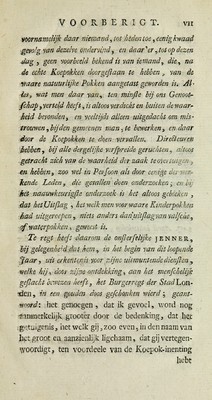 VOORBERIGT. VII
voornamelijk daar niemand, tot heden toe, eenig kwaad
gevolg van dezelve ondervind, en daar 'er, tot op dezen
dag, geen voorbeeld bekend is van iemand, die, na
de echte Koepokken doorgestaan te hebben, van de
waare natuurlyke Pokken aangetast geworden is. Al-
les, wat men daar van, ten minste bij ons Genoot-
schap, verteld heeft, is altoos verdicht en buiten de waar-
heid bevonden, en veeltijds alleen uitgedacht om mis-
trouwen, bijden gemeenen man, te bewerken, en daar
door de Koepokken te doen vervallen. Directeuren
hebben, bij alle dergelijke verspreide geruchten, altoos
getracht zich van de waarheid der zaak te overtuigen,
en hebben, zoo wel in Persoon als door eenige der
kende Leden, die gevallen doen onderzoeken, en bij
het naauwkeurigste onderzoek is het altoos gebleken
dat het Uitslag, het welk men voor waare Kinderpokken
had uitgekreepen, niets anders dan uitslag van valsche,
of waterpokken, geweest is.
Te regt heeft daarom de onsterfelijke JENNER,
bij gelegenheid dat hem, in het begin van dit loopende
Jaar, uit erkentenis voor zijne uitmuntende diensten,
welke hij, door zijne ontdekking, aan het menschelijk
geslacht bewezen heeft, het Burgerregt der Stad Lon-
den, in een gouden doos geschonken wierd; geant-
woord: het genoegen, dat ik gevoel, word nog
aanmerkelijk grooter door de bedenking, dat het
getuigenis, het welk gij, zoo even, in den naam van
het groot en aanzienlijk ligchaam, dat gij vertegen-
woordigt, ten voordeele van de Koepok-inenting
hebt